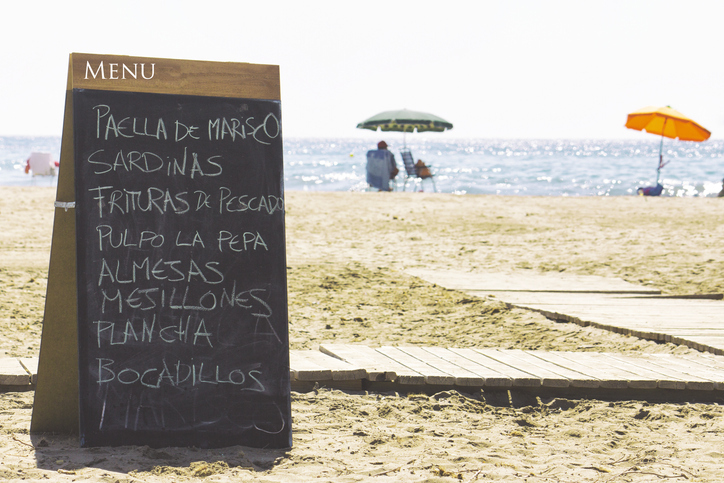 MENU
PAELLA DE MARISCO
SARDINAS
FRITURAS DE PESCADO
PULPO LA PEPA
ALMEJAS
MEJILLONES
PLANCHA
BOCADILLOS